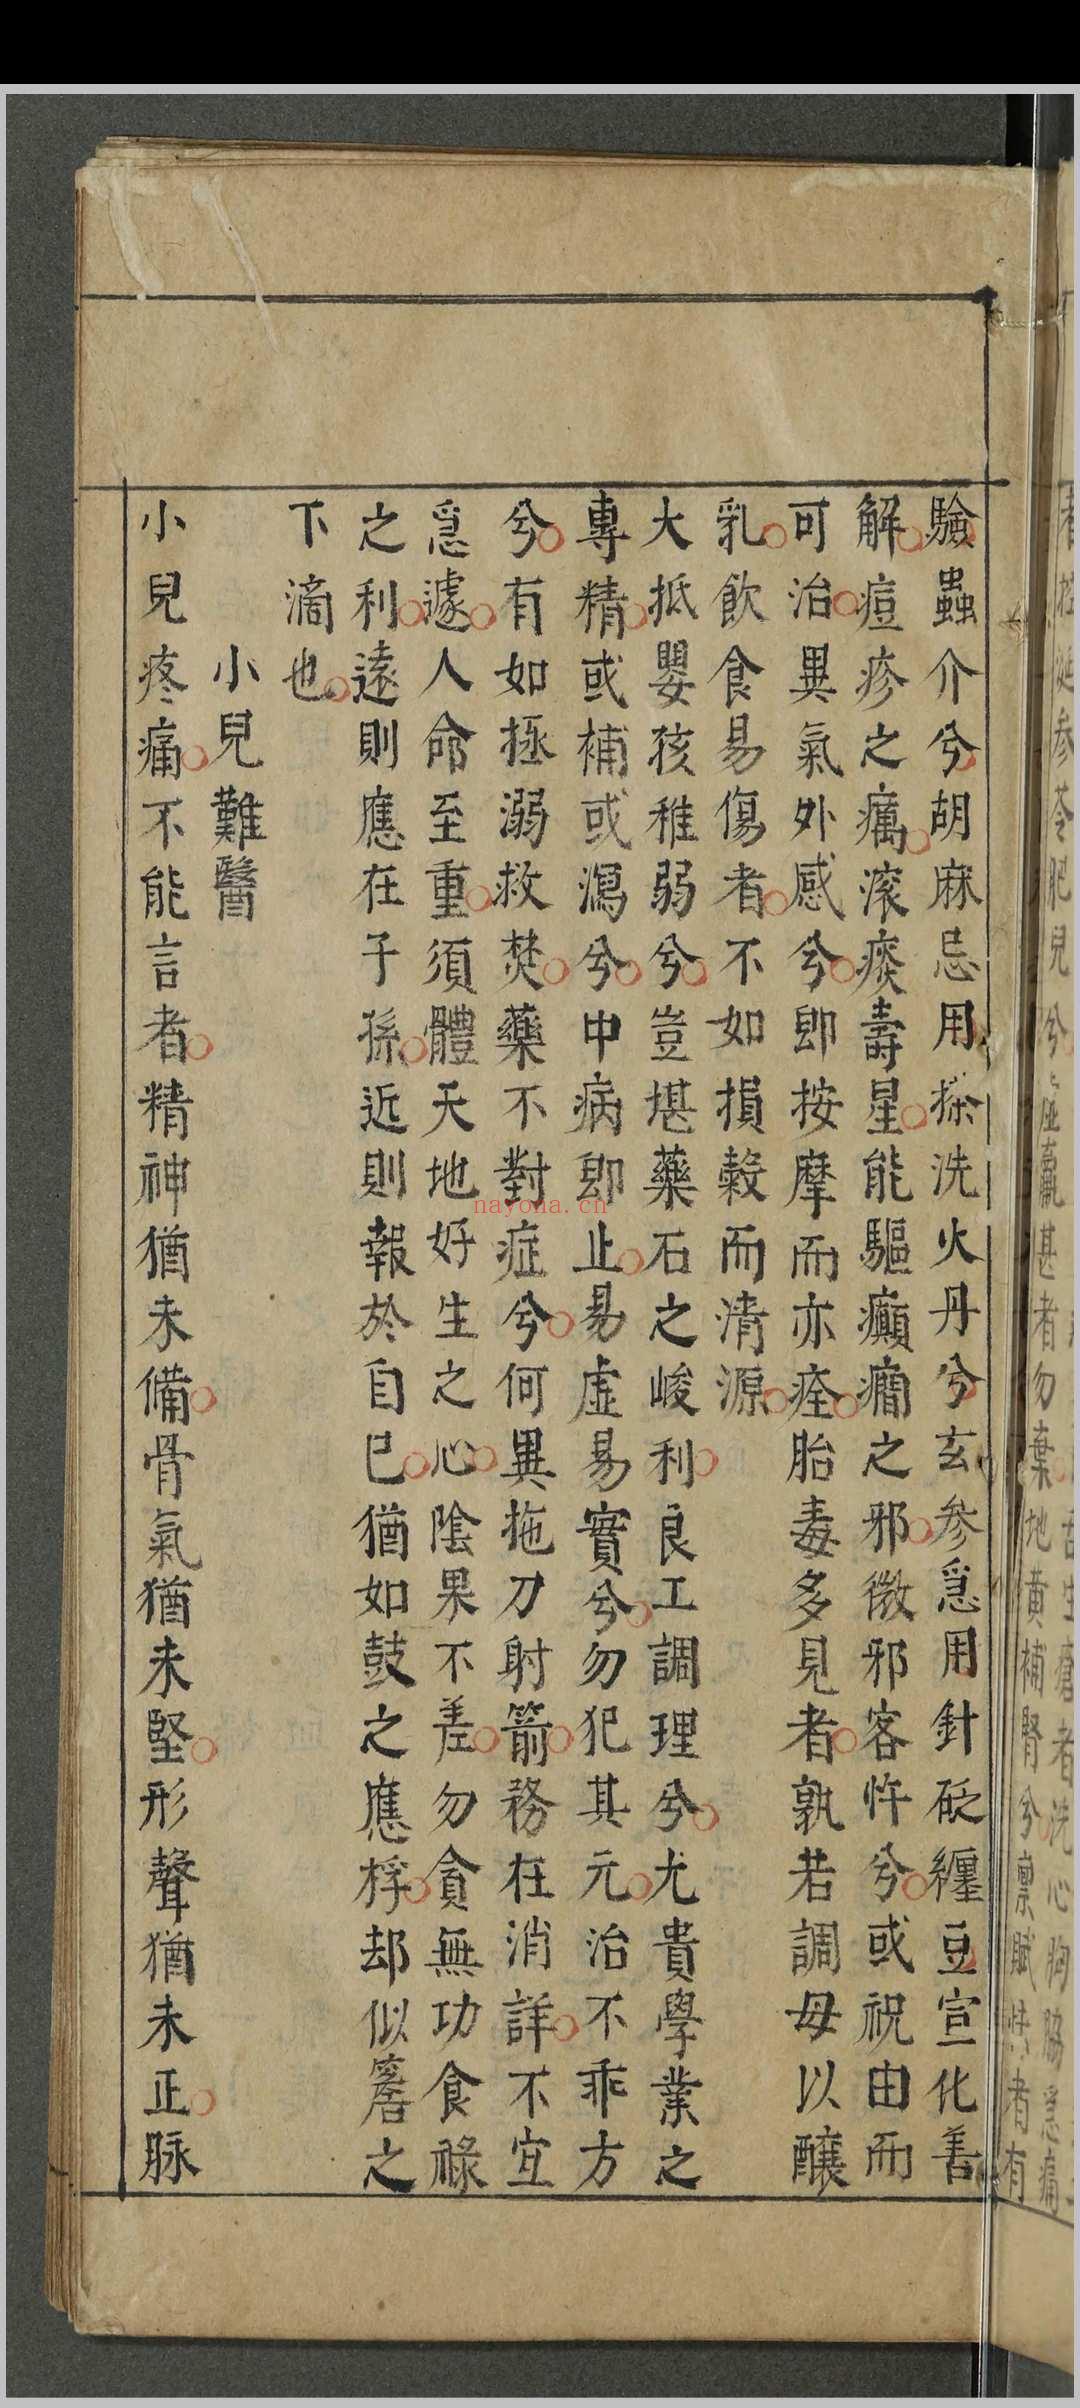 驗蟲介兮胡麻忌用搽洗火丹兮玄參急用針砭纏豆宣化善
解痘疹之癘滚痰壽星能驅癲癎之邪微邪客忤兮或祝由而
可治異氣外感兮即按摩而亦痊胎毒多見者孰若調母以釀
乳飲食易傷者不如損穀而清源
大抵嬰孩稚弱兮豈堪藥石之峻利良工調理兮尤貴學業之
專精或補或瀉兮中病即止易虛易實兮勿犯其元治不乖方
兮有如拯溺救焚藥不對症兮何異拖刀射箭務在消詳不宜
急遽人命至重須體天地好生之心陰果不差勿貪無功食祿
之利遠則應在子孫近則報於自己猶如鼓之應桴却似簷之
下滴也
小兒難醫
小兒疼痛不能言者精神猶未備骨氣猶未堅形聲猶未正脉
nayona.cn